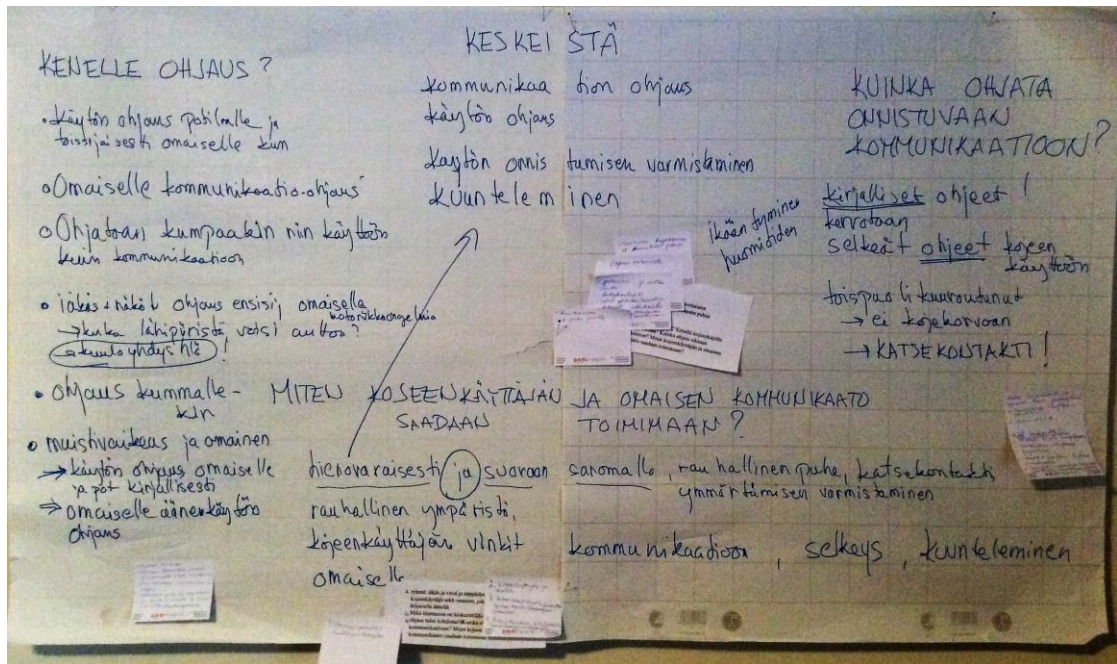 KENELLE OHJAUS?
• käytön ohjaus potilaalle ja
toissijaisesti omaiselle kun
• Omaiselle kommunikaatio-ohjaus
• Ohjataan kumpaakin niin käytöön
kuin kommunikaatioon
• iäkäs + näkö↓ ohjaus ensisij. omaisella
motoriikkaongelmia
→ kuka lähipiiristä voisi auttaa?
→ kuuloyhdyshlö!
• ohjaus kummalle-
kin
• muistivaikeus ja omainen
→ käytön ohjaus omaiselle
ja pot kirjallisesti
⇒ omaiselle äänenkäytön
ohjaus
KESKEISTÄ
kommunikaation ohjaus
käytön ohjaus
käytön onnistumisen varmistaminen
kuunteleminen
KUINKA OHJATA
ONNISTUVAAN
KOMMUNIKAATIOON?
kirjalliset ohjeet!
kerrotaan
selkeät ohjeet kojeen
käyttöön
ikääntyminen
huomioiden
toispuoli kuuroutunut
→ ei kojekorvaan
→ KATSEKONTAKTI!
MITEN KOJEENKÄYTTÄJÄN JA OMAISEN KOMMUNIKAATO
SAADAAN TOIMIMAAN?
hienovaraisesti ja suoraan sanomalla, rauhallinen puhe, katsekontakti
ymmärtämisen varmistaminen
rauhallinen ympäristö,
kojeenkäyttäjän vinkit kommunikaatioon, selkeys, kuunteleminen
omaiselle